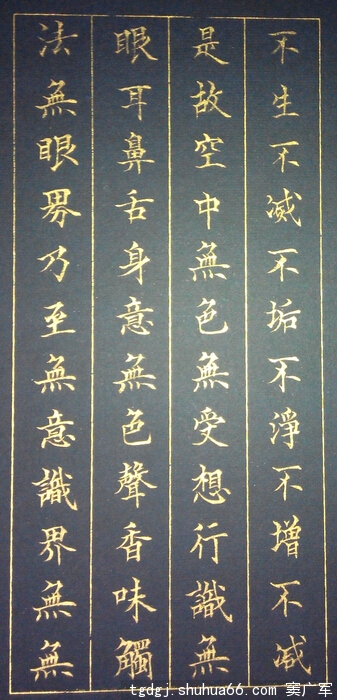 不生不滅不垢不淨不增不減
是故空中無色無受想行識無
眼耳鼻舌身意無色聲香味觸
法無眼界乃至無意識界無無
tgdgj.shuhua66.com 窦广军